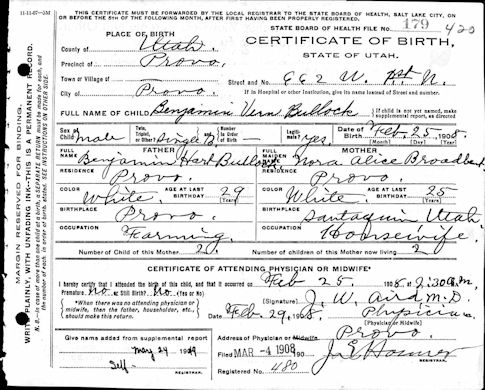 11-11-07-25M
THIS CERTIFICATE MUST BE FORWARDED BY THE LOCAL REGISTRAR TO THE STATE BOARD OF HEALTH, SALT LAKE CITY, ON
OR BEFORE THE 5TH OF THE FOLLOWING MONTH, AFTER FIRST HAVING BEEN PROPERLY REGISTERED.
STATE BOARD OF HEALTH FILE NO. 179 420
PLACE OF BIRTH
CERTIFICATE OF BIRTH.
STATE OF UTAH.
County of Utah.
Precinct of Provo.
Town or Village of
Street and No. 662 W. 1st N.
City of Provo.
If in Hospital or other Institution, give its name instead of Street and Number.
FULL NAME OF CHILD Benjamin Vern Bullock
If child is not yet named, make supplemental report, as directed
Sex of Child Male
Twin, Triplet, or Other? Single
Number in Order of Birth
Legitimate? Yes.
Date of Birth Feb. 25 1908
(Month) (Day) (Year)
FATHER
FULL NAME Benjamin Hart Bullock
MOTHER
FULL MAIDEN NAME Nora Alice Broadbent
RESIDENCE Provo.
RESIDENCE Provo.
COLOR White
AGE AT LAST BIRTHDAY 29 (Years)
COLOR White
AGE AT LAST BIRTHDAY 25 (Years)
BIRTHPLACE Provo.
BIRTHPLACE Santaquin Utah
OCCUPATION Farming.
OCCUPATION Housewife.
Number of Child of this Mother 2
Number of children of this Mother now living 2
CERTIFICATE OF ATTENDING PHYSICIAN OR MIDWIFE*
I hereby certify that I attended the birth of this child, and that it occurred on Feb 25 1908, at 2:30 A.M.
Premature No or Still Birth? No. (Yes or No)
*When there was no attending physician or midwife, then the father, householder, etc., should make this return.
(Signature) J. W. Aird M.D.
Date Feb. 29, 1908.
Physician
(Physician or Midwife)
Give name added from supplemental report
May 29 1909
Address of Physician or Midwife Provo
Filed MAR -4 1908
J. E. Hosmer
REGISTRAR.
Registered No. 480
REGISTRAR.
MARGIN RESERVED FOR BINDING.
WRITE PLAINLY, WITH UNFADING INK—THIS IS A PERMANENT RECORD.
N. B.—In case of more than one child at a birth, a SEPARATE RETURN must be made for each, and the number of each, in order of birth, stated. SEE INSTRUCTIONS ON OTHER SIDE.